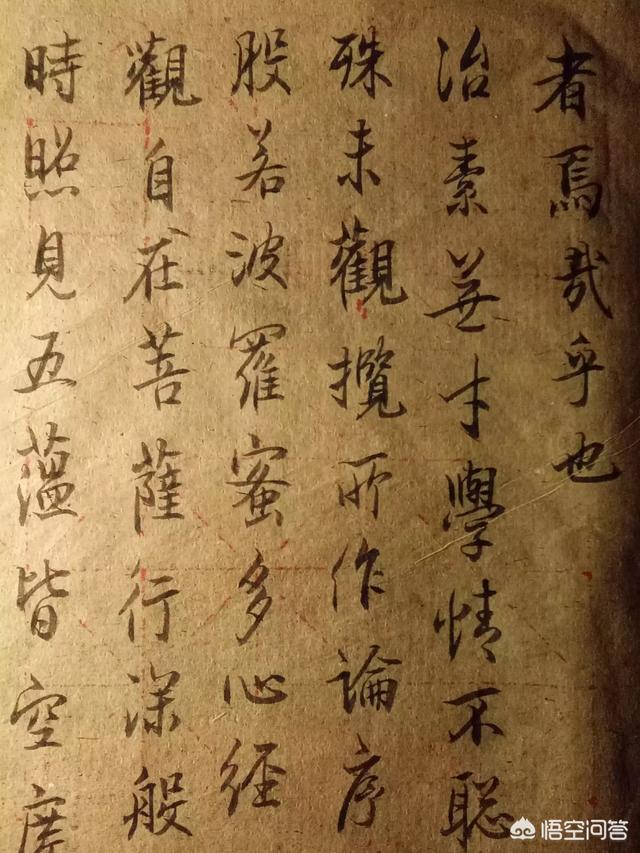 者焉哉乎也
治素無才學情不聡
殊未觀攬所作論序
股若波羅蜜多心経
觀自在菩薩行深般
時照見五薀皆空度
悟空问答